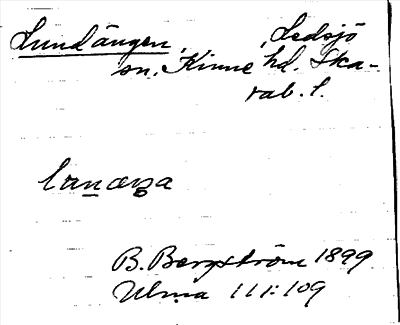 Lundängen, Ledsjö
sn. Kinne hd. Ska-
rab. l.
B. Bergström 1899
Ulma 111:109